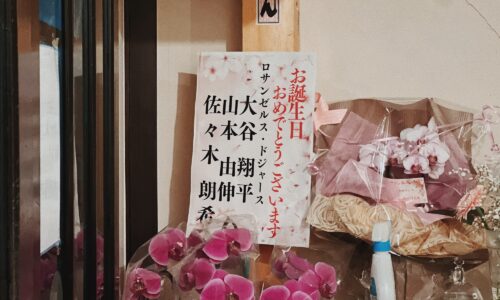 ん
お誕生日
おめでとうございます
ロサンゼルス・ドジャース
大谷 翔平
山本 由伸
佐々木 朗希